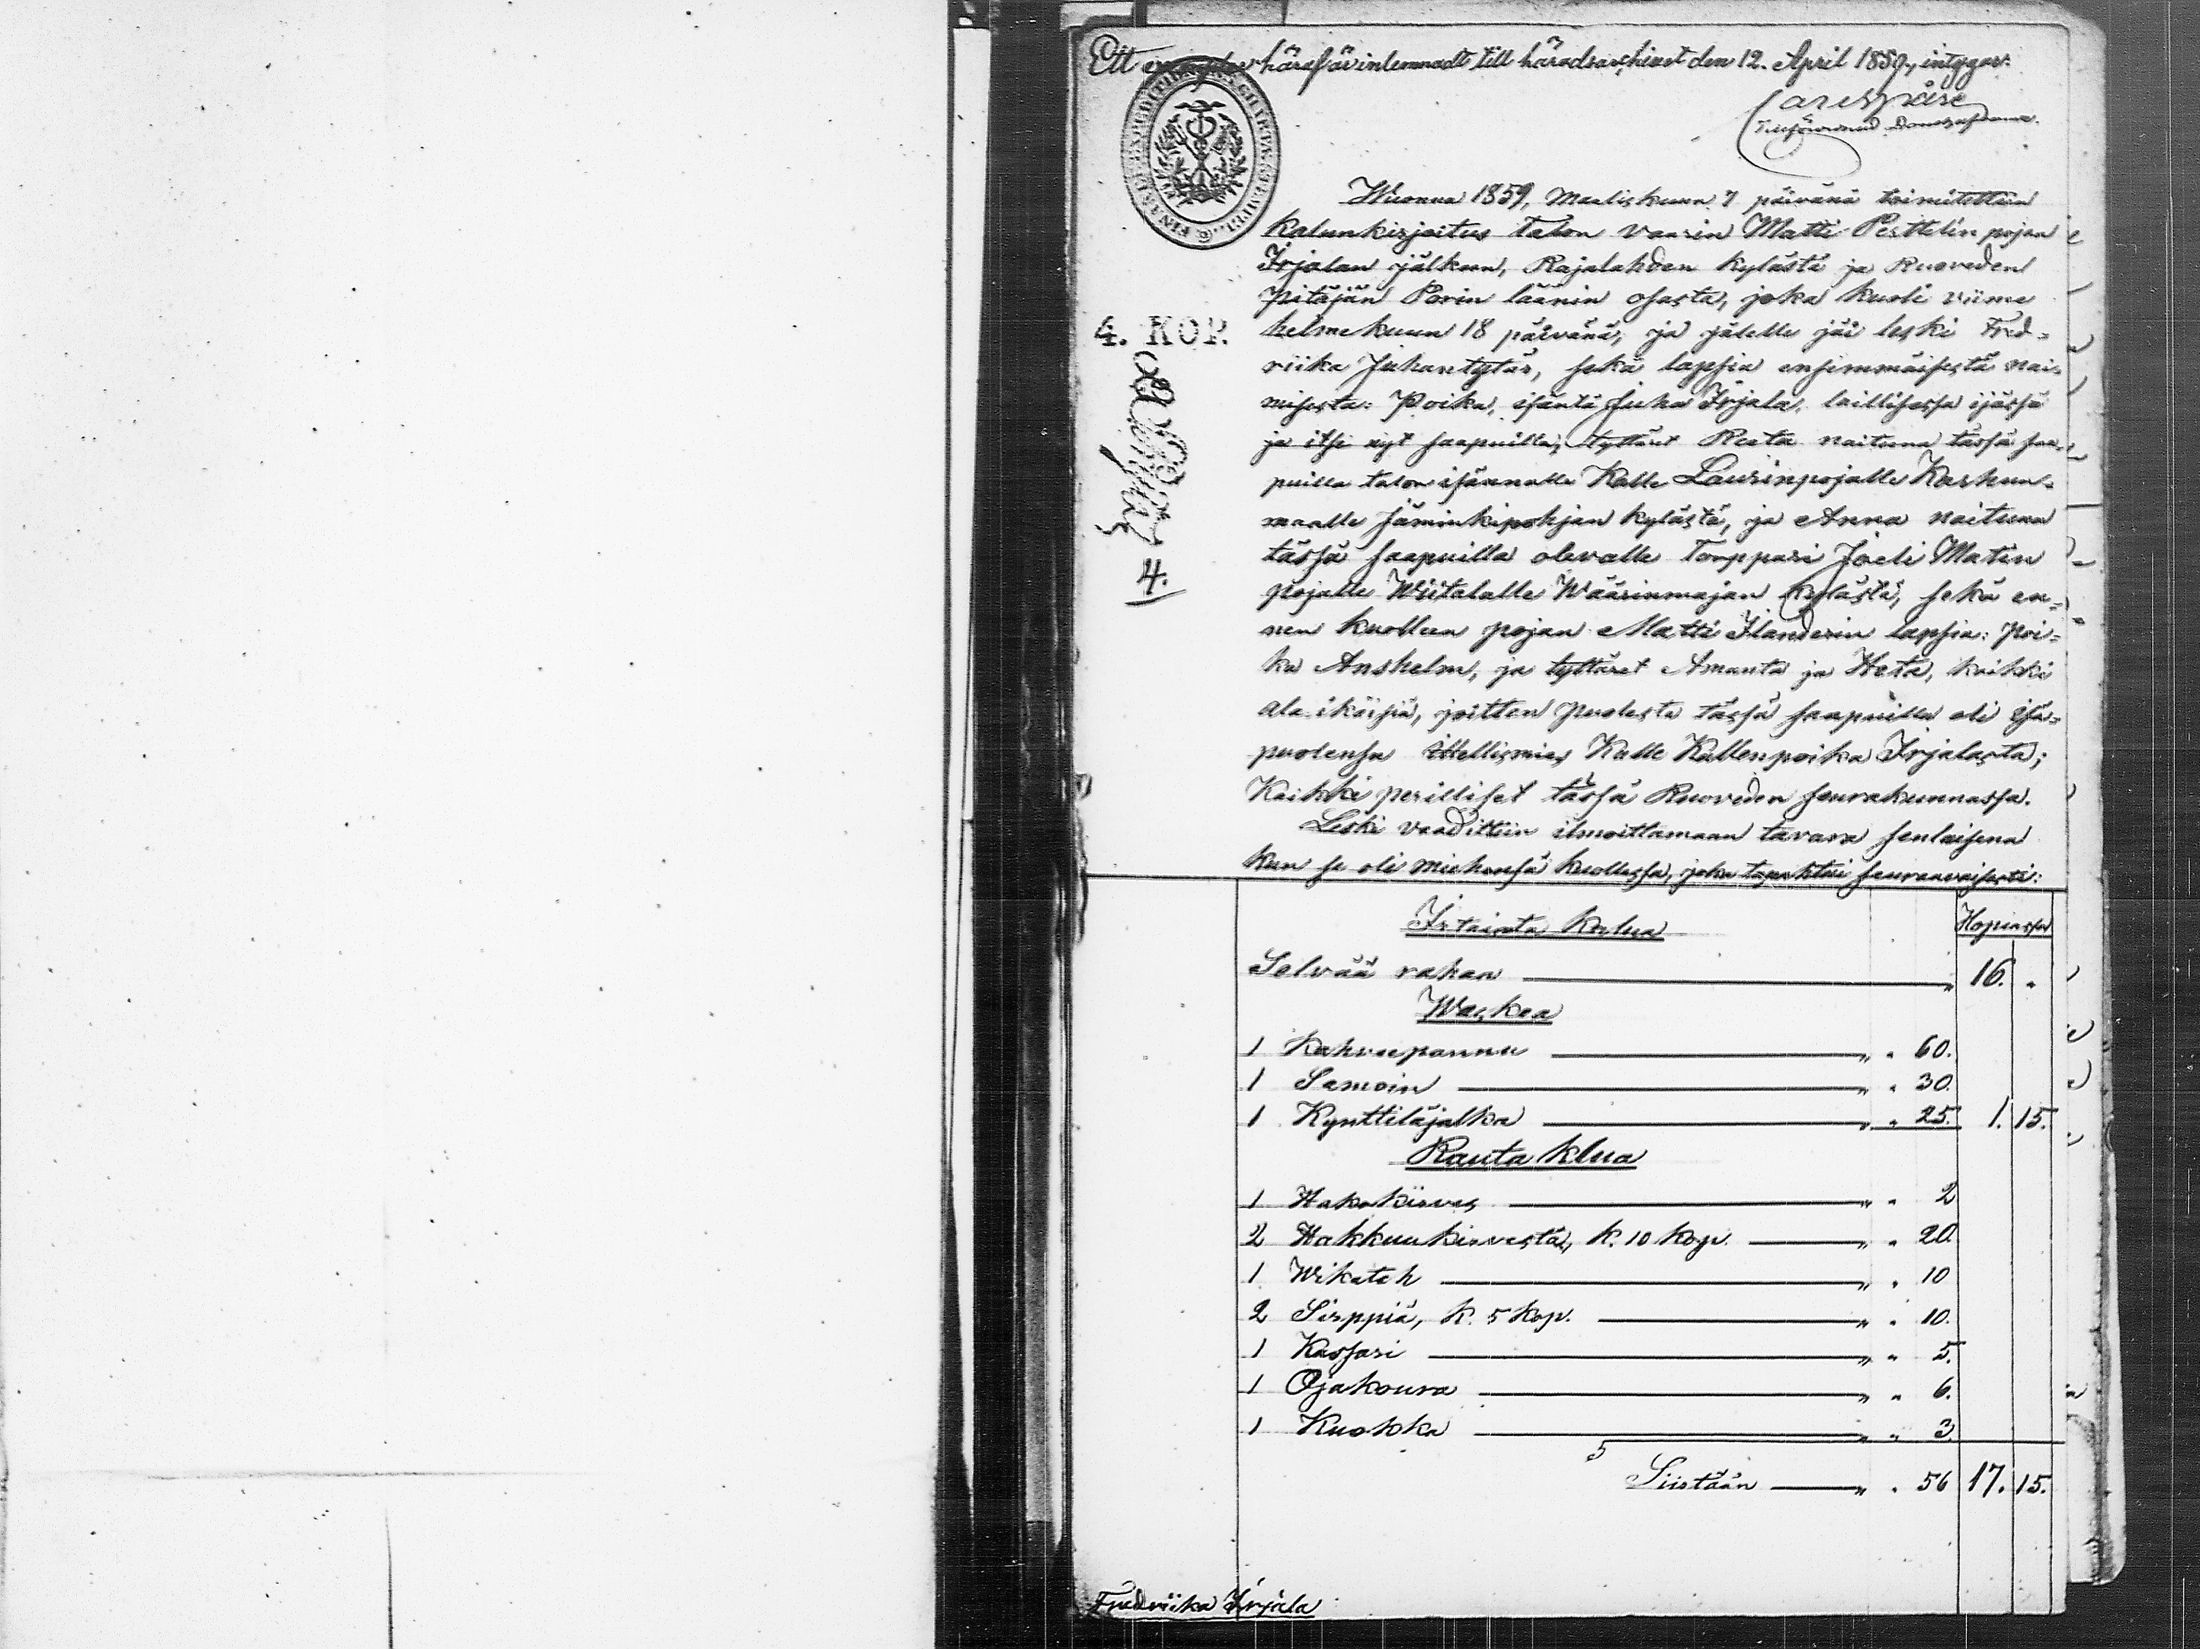 Ett exemplar häraf är inlemnadt till häradsarchivet den 12. April 1859, intygar:
Wuonna 1859, Maaliskuun 7 päivänä toimitettiin
kalunkirjoitus talon vaarin Matti Perttelin pojan
Irjalan jälkeen, Rajalahden kylästä ja Ruoveden
Pitäjän Porin läänin osasta, joka kuoli viime
4. KOP.
helmekuun 18 päivänä, ja jälelle jäi leski Fred-
riika Juhantytär, sekä lapsia ensimmäisestä nai-
misesta: Poika, isäntä Juha Irjala, laillisessa ijässä
ja itse nyt saapuilla, tyttäret Reeta naituna tässä saa-
puilla talon isännälle Kalle Laurinpojalle Karhun-
maalle Jäminkipohjan kylästä, ja Anna naituna
tässä saapuilla olevalle Torppari Joeli Matin
4.
pojalle Wiitalalle Wäärinmajan kylästä, sekä en-
nen kuolleen pojan Matti Ilanderin lapsia: Poi-
ka Anshelm, ja tyttäret Amanta ja Heta, kaikki
ala-ikäisiä, joitten puolesta tässä saapuilla oli isä-
puolensa ittellismies Kalle Kallenpoika Irjalasta;
Kaikki perilliset tässä Ruoveden seurakunnassa.
Leski vaadittiin ilmoittamaan tavara senlaisena
kun se oli miehensä kuollessa, joka tapahtui seuraavaisesti:
Irtainta kalua Hopiassa
Selvää rahaa " 16. "
Waskea
1 Kahveepannu " " 60.
1 Samoin " " 30.
1 Kynttiläjalka " " 25. 1. 15.
Rauta klua
1 Hakokirves " " 2
2 Hakkuukirvestä, k. 10 kop. " " 20.
1 Wikateh " " 10
2 Sirppiä, k. 5 kop. " " 10.
1 Kassari " " 5.
1 Ojakoura " " 6.
1 Kuokka " " 3.
Siirtään " " 56 17. 15.
Fredriika Irjala